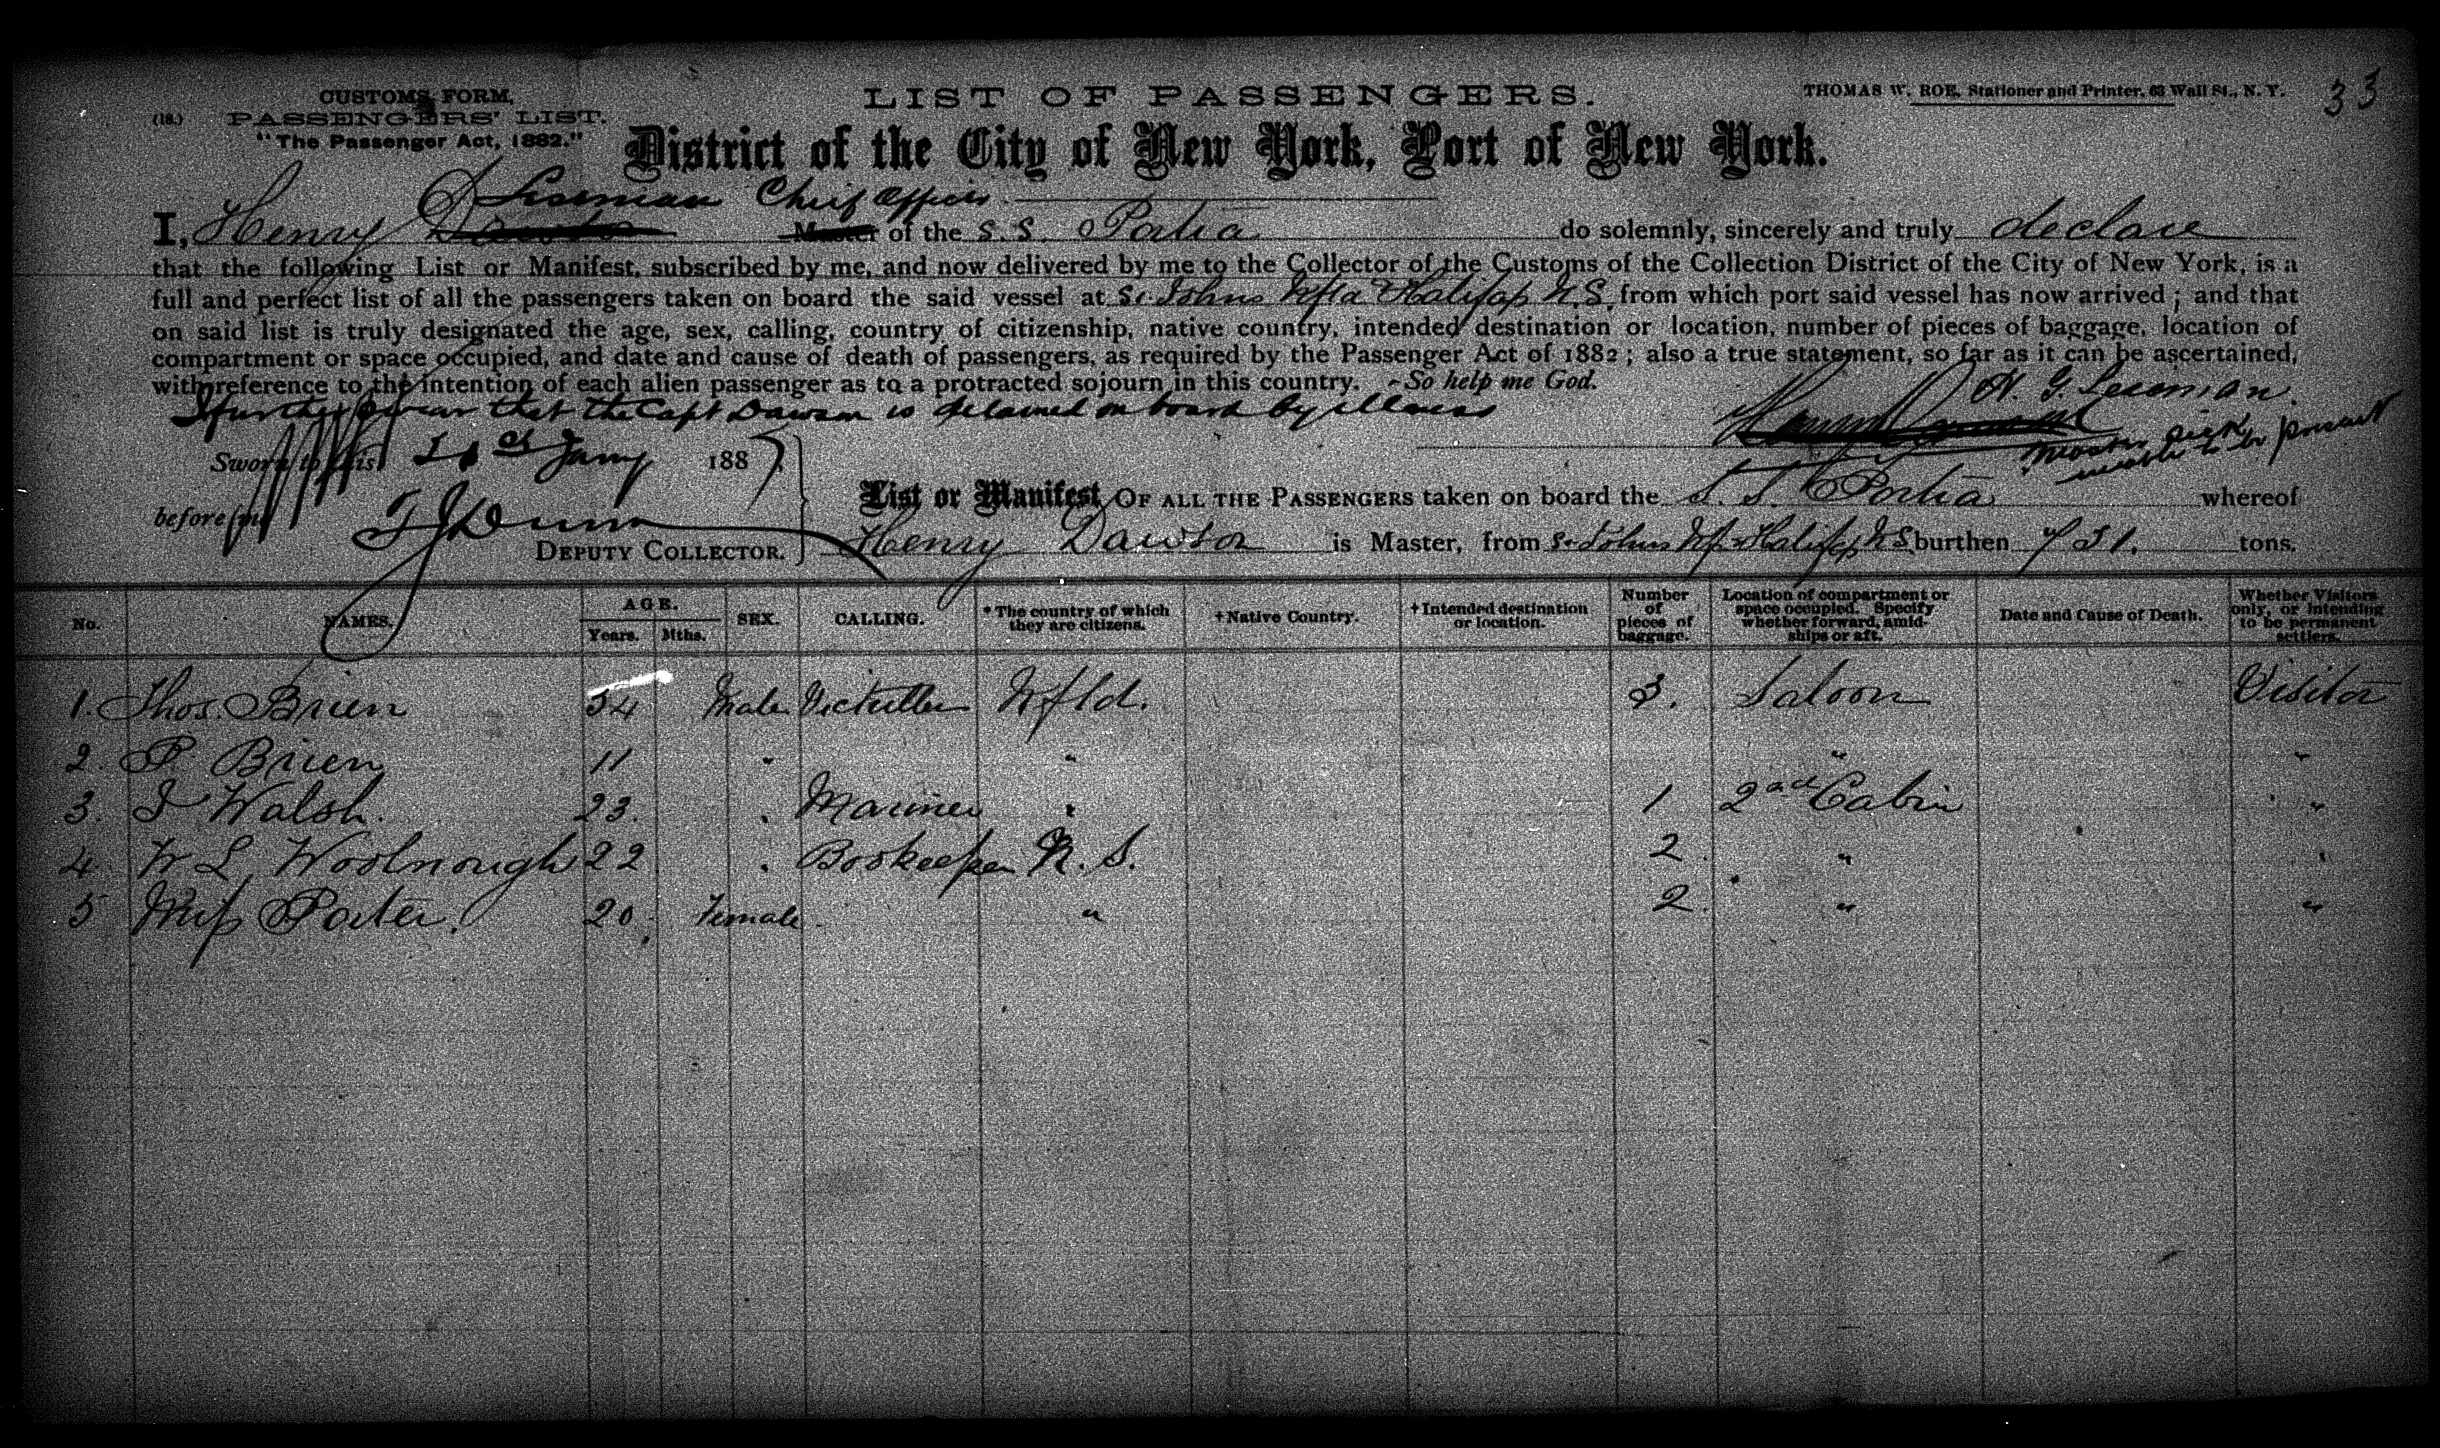 CUSTOMS FORM,
(18.) PASSENGERS' LIST.
"The Passenger Act, 1882."
LIST OF PASSENGERS.
THOMAS W. ROE, Stationer and Printer, 63 Wall St., N. Y.
33
District of the City of New York, Port of New York.
Chief Officer
I, Henry Dawson Master of the S.S. Portia do solemnly, sincerely and truly declare
that the following List or Manifest, subscribed by me, and now delivered by me to the Collector of the Customs of the Collection District of the City of New York, is a
full and perfect list of all the passengers taken on board the said vessel at St. Johns Nfld Halifax N.S. from which port said vessel has now arrived; and that
on said list is truly designated the age, sex, calling, country of citizenship, native country, intended destination or location, number of pieces of baggage, location of
compartment or space occupied, and date and cause of death of passengers, as required by the Passenger Act of 1882; also a true statement, so far as it can be ascertained,
with reference to the intention of each alien passenger as to a protracted sojourn in this country. - So help me God.
I further swear that the Capt Dawson is detained on board by illness
Master sick
unable to be present
Sworn to this 21st Jany 1887
before me
DEPUTY COLLECTOR.
List or Manifest OF ALL THE PASSENGERS taken on board the S. S. Portia whereof
Henry Dawson is Master, from St Johns Nf Halifax N.S. burthen 731. tons.
No. NAMES. AGE. Years. Mths. SEX. CALLING. *The country of which they are citizens. †Native Country. †Intended destination or location. Number of pieces of baggage. Location of compartment or space occupied. Specify whether forward, amidships or aft. Date and Cause of Death. Whether Visitors only, or intending to be permanent settlers.
1. Thos. Brien 34 Male Victuller Nfld. 3. Saloon Visitor
2. P. Brien 11 " " " "
3. J Walsh. 23. " Mariner " 1 2nd Cabin "
4. W L Woolnough 22 " Bookeeper N. S. 2 " "
5 Miss Porter. 20. Female " 2. " "